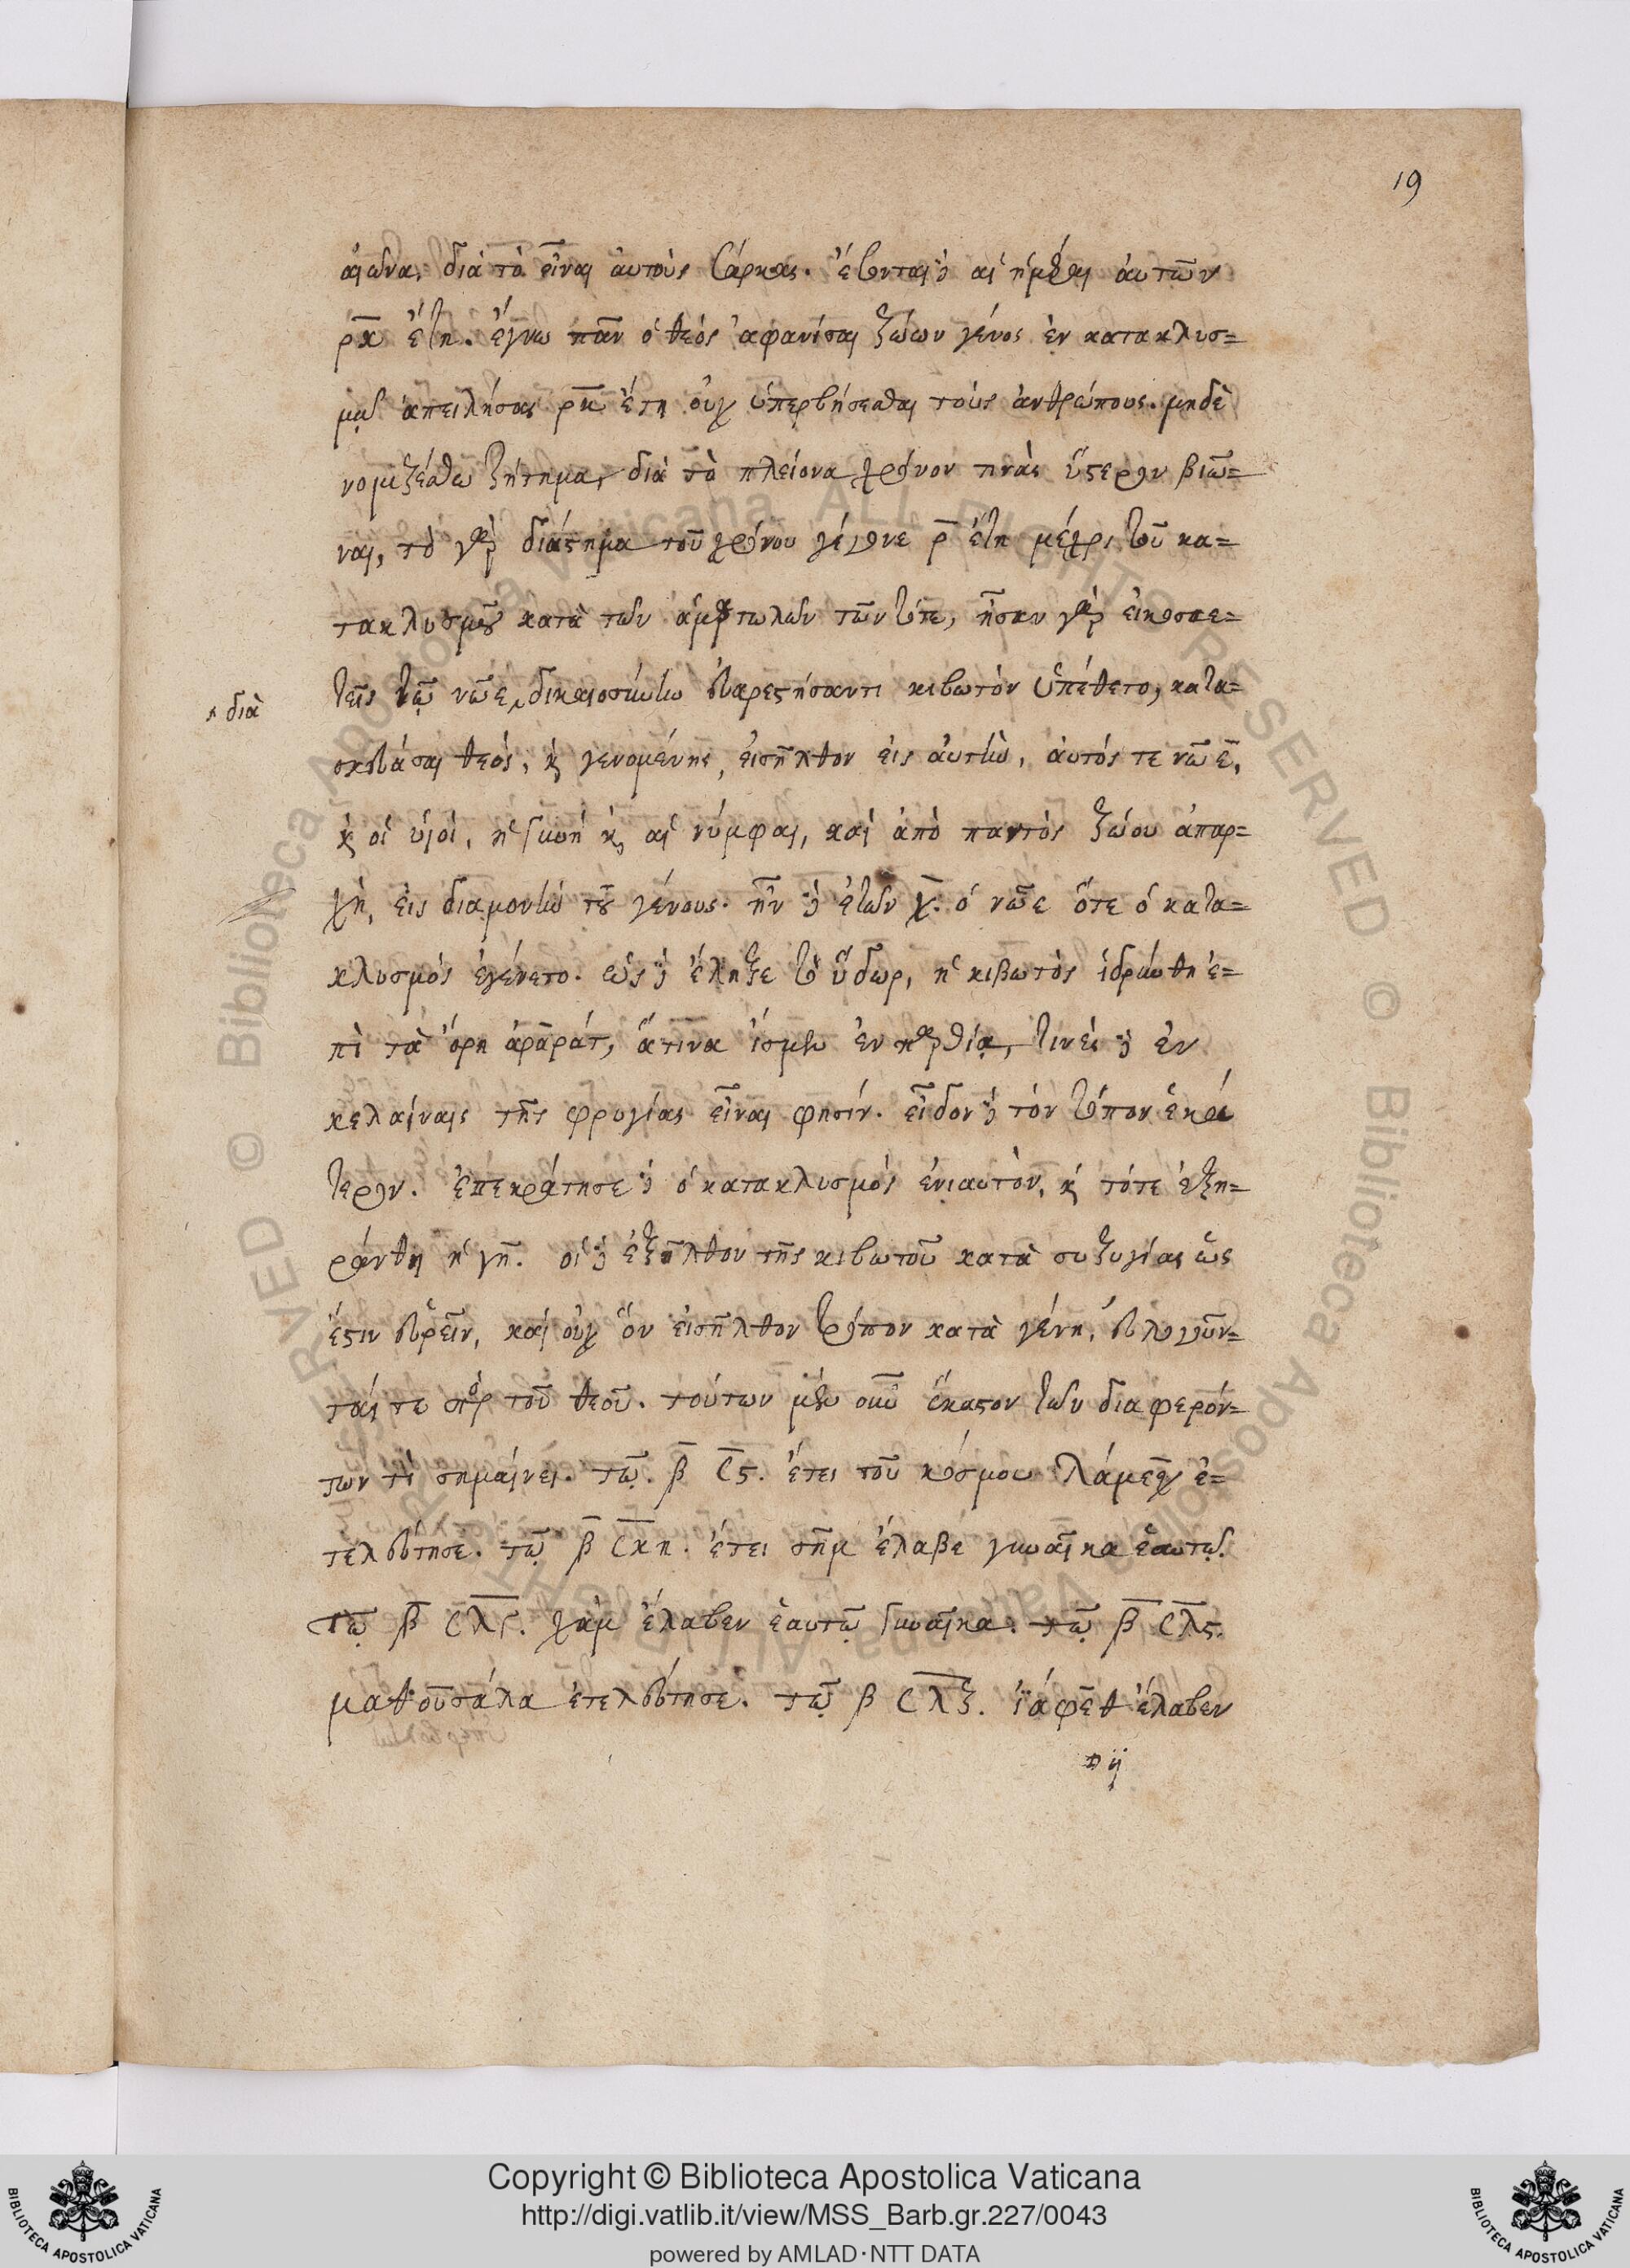 19
αἰῶνα, διὰ τὸ εἶναι ἀυτοὺς σάρκας. ἔσονται δὲ αἱ ἡμέραι ἀυτῶν
ρ̅κ̅ ἔτη. ἔγνω πᾶν ὁ θεὸς ἀφανίσαι ζώων γένος ἐν κατακλυσ=
μῷ ἀπειλήσας ρ̅κ̅ ἔτη οὐχ ὑπερβήσεσθαι τοὺς ἀνθρώπους. μηδὲ
νομιζέσθω ζήτημα, διὰ τὸ πλείονα χρόνον τινὰς ὕστερον βιῶ=
ναι, τὸ γὰρ διάστημα τοῦ χρόνου γέγονε ρ̅ ἔτη μέχρι τοῦ κα=
τακλυσμοῦ κατὰ τῶν ἁμαρτωλῶν τῶν τότε, ἦσαν γὰρ εἰκοσαε=
τεῖς τῷ νῶε δικαιοσύνην ἐυαρεστήσαντι κιβωτὸν ὑπέθετο, κατα=
διὰ
σκευάσαι θεός, καὶ γενομένης, εἰσῆλθον εἰς ἀυτὴν, ἀυτός τε νῶε,
καὶ οἱ υἱοὶ, ἡ γυνὴ καὶ αἱ νύμφαι, καὶ ἀπὸ παντὸς ζώου ἀπαρ=
χὴ, εἰς διαμονὴν τοῦ γένους. ἦν δὲ ἐτῶν χ̅. ὁ νῶε ὅτε ὁ κατα=
κλυσμὸς ἐγένετο. ὡς δὲ ἔληξε τὸ ὕδωρ, ἡ κιβωτὸς ἱδρύνθη ἐ=
πὶ τὰ ὄρη ἀραρὰτ, ἅτινα ἴσμεν ἐν παρθίᾳ, τινὲς δὲ ἐν
κελαίναις τῆς φρυγίας εἶναι φησίν. εἶδον δὲ τὸν τόπον ἑκά
τερον. ἐπεκράτησε δὲ ὁ κατακλυσμὸς ἐνιαυτὸν, καὶ τότε ἐξη=
ράνθη ἡ γῆ. οἱ δὲ ἐξῆλθον τῆς κιβωτοῦ κατὰ συζυγίας ὡς
ἔστιν ἑυρεῖν, καὶ οὐχ ὃν εἰσῆλθον τρόπον κατὰ γένη, ἐυλογοῦν=
ταί τε παρὰ τοῦ θεοῦ. τούτων μὲν οὖν ἕκαστον τῶν διαφερόν=
των τὶ σημαίνει. τῷ. β̅ σ̅ς. ἔτει τοῦ κόσμου λάμεχ ἐ=
τελεύτησε. τῷ β̅ σ̅κ̅η. ἔτει σὴμ ἔλαβε γυναῖκα ἑαυτῷ.
τῷ β̅ σ̅λ̅ϛ. χὰμ ἔλαβεν ἑαυτῷ γυναῖκα. τῷ β̅ σ̅λ̅ς.
μαθουσάλα ἐτελεύτησε. τῷ β σ̅λ̅ζ. ϊάφεθ ἔλαβεν
Copyright © Biblioteca Apostolica Vaticana
http://digi.vatlib.it/view/MSS_Barb.gr.227/0043
powered by AMLAD·NTT DATA
BIBLIOTECA APOSTOLICA VATICANA
BIBLIOTECA APOSTOLICA VATICANA